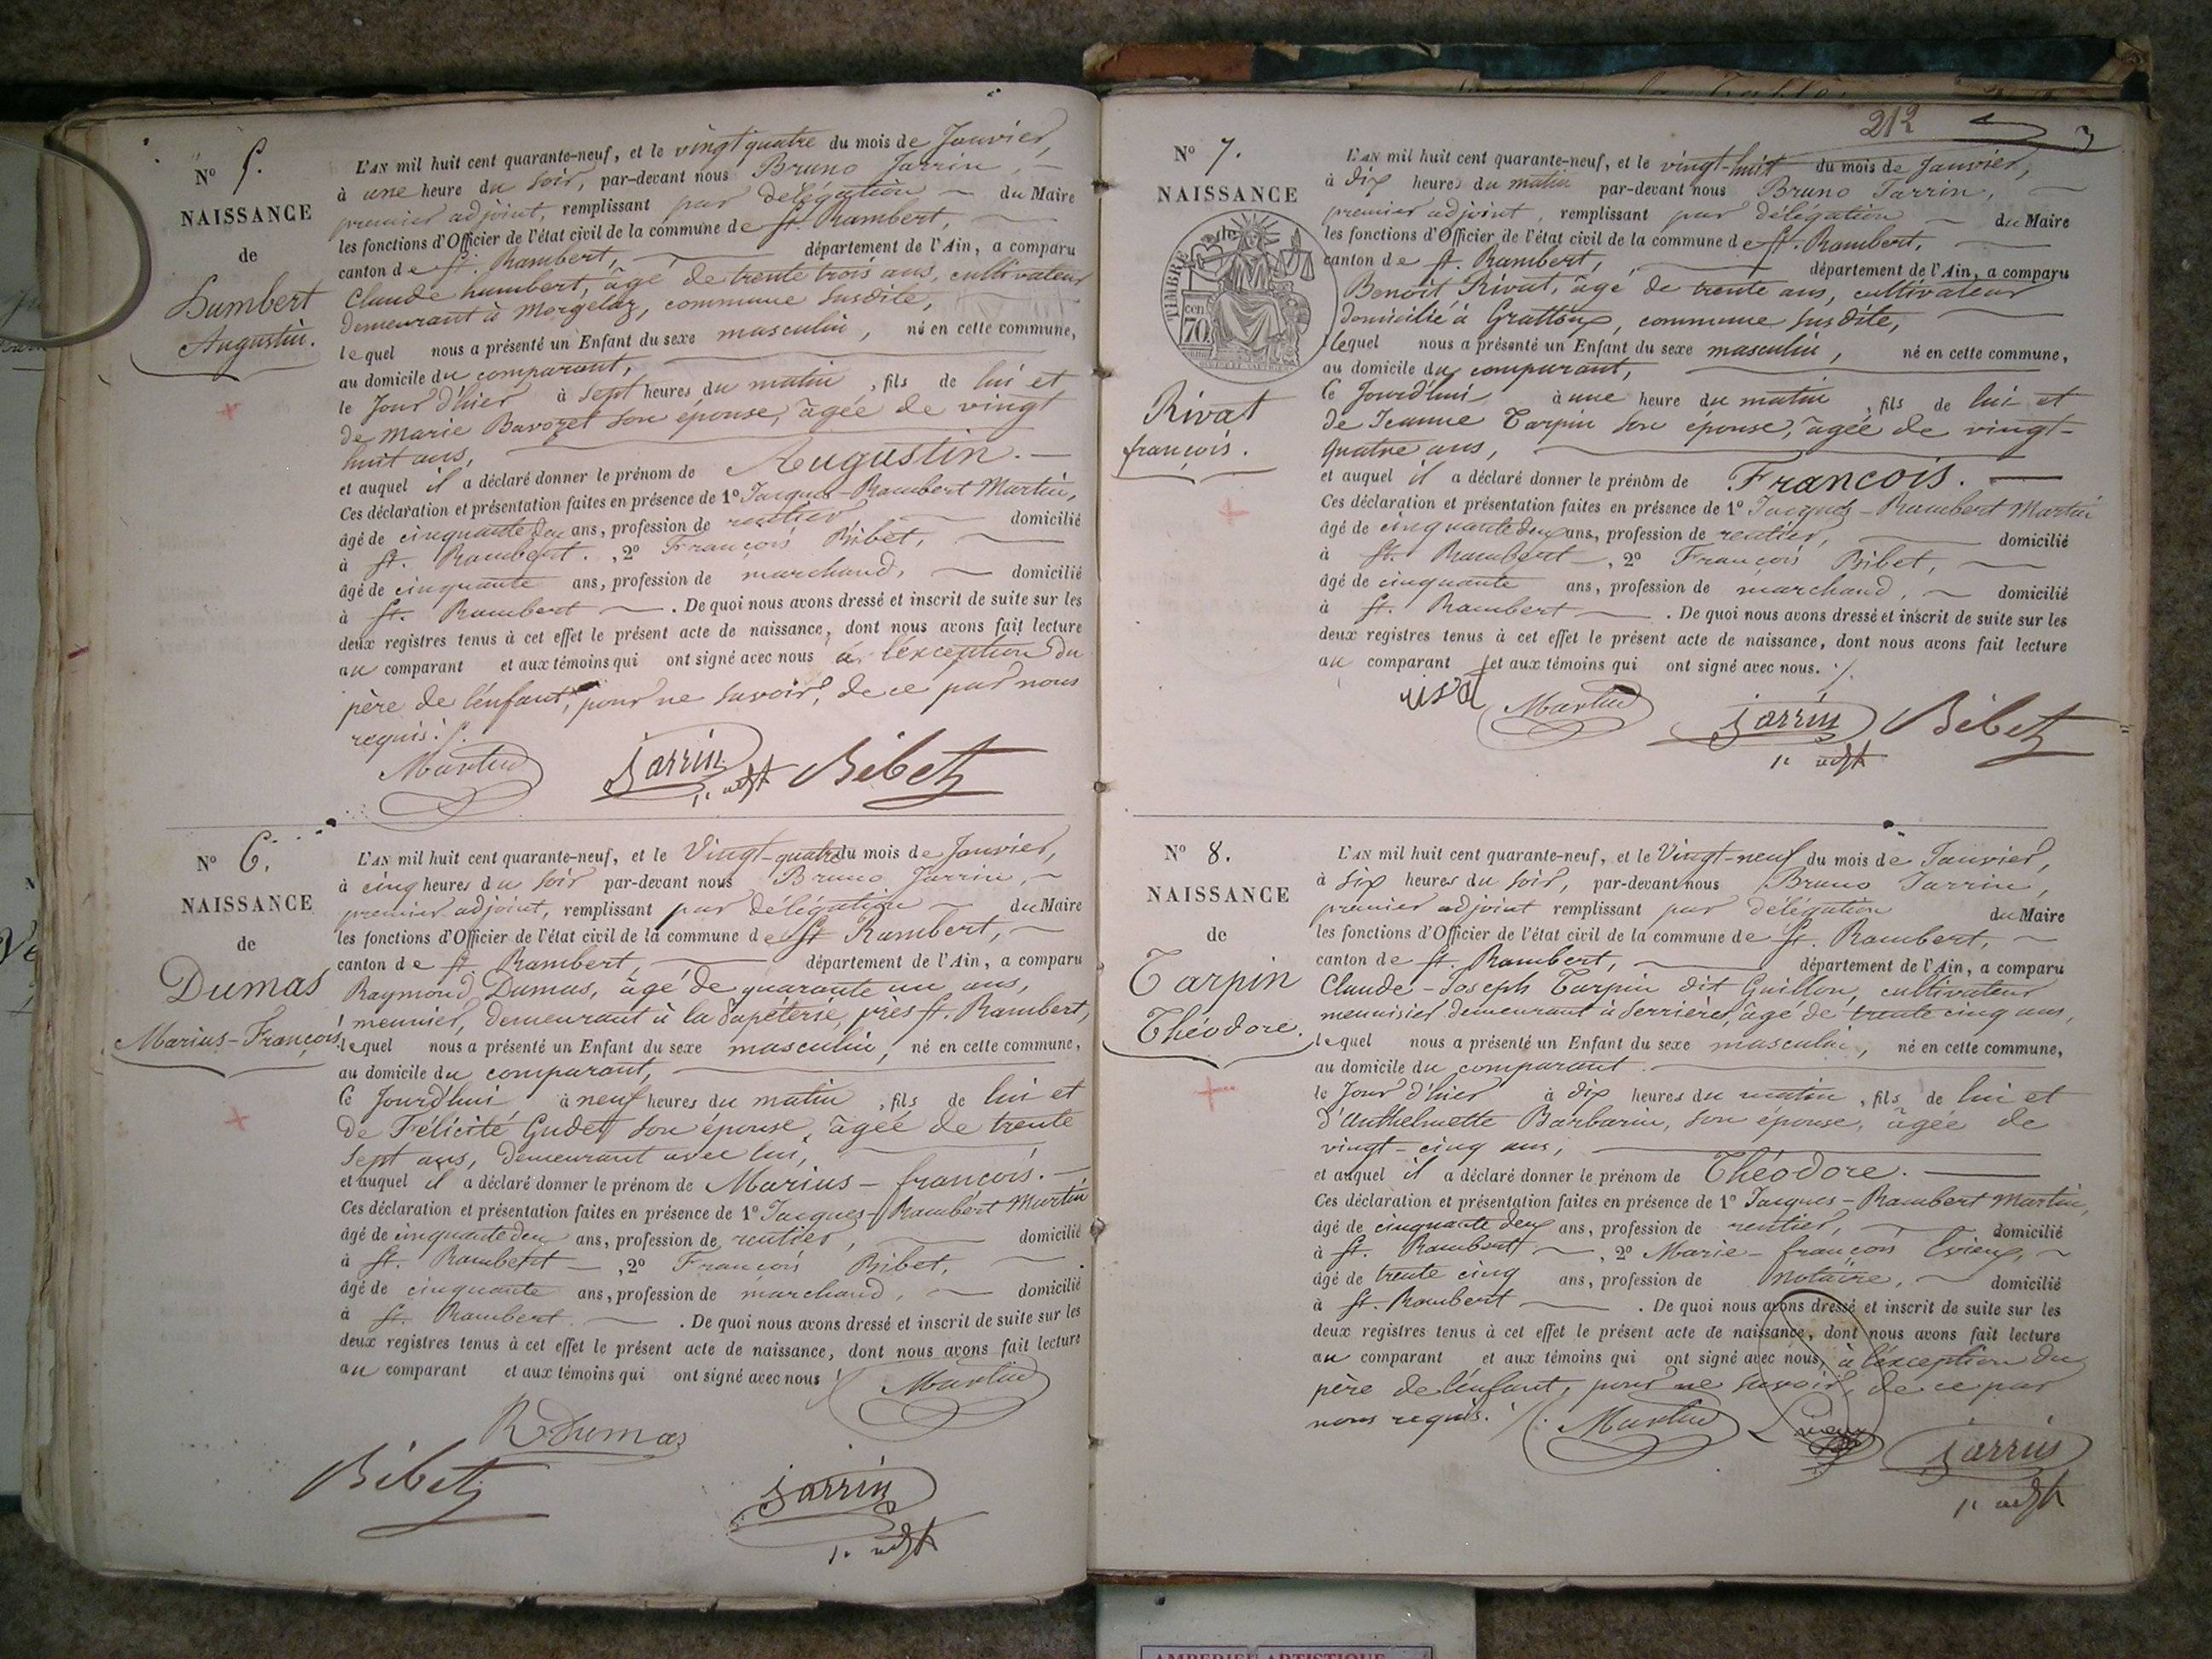 N° 5.
NAISSANCE
de
Humbert
Augustin.
L'AN mil huit cent quarante-neuf, et le vingt quatre du mois de Janvier,
à une heure du soir, par-devant nous Bruno Jarrin,
premier adjoint, remplissant par délégation du Maire
les fonctions d'Officier de l'état civil de la commune de St. Rambert,
canton de St. Rambert, département de l'Ain, a comparu
Claude humbert, âgé de trente trois ans, cultivateur
demeurant à Morgelaz, commune susdite,
lequel nous a présenté un Enfant du sexe masculin, né en cette commune,
au domicile du comparant,
le jour d'hier à sept heures du matin, fils de lui et
de Marie Bavozet son épouse, âgée de vingt
huit ans,
et auquel il a déclaré donner le prénom de Augustin.
Ces déclaration et présentation faites en présence de 1° Jacques-Rambert Martin,
âgé de cinquante deux ans, profession de rentier domicilié
à St. Rambert. , 2° François Bibet,
âgé de cinquante ans, profession de marchand, domicilié
à St. Rambert . De quoi nous avons dressé et inscrit de suite sur les
deux registres tenus à cet effet le présent acte de naissance, dont nous avons fait lecture
au comparant et aux témoins qui ont signé avec nous à l'exception du
père de l'enfant, pour ne savoir, de ce par nous
requis ./.
Martin Jarrin Bibet
1r adjt
N° 6.
NAISSANCE
de
Dumas
Marius-François
L'AN mil huit cent quarante-neuf, et le Vingt-quatre du mois de Janvier,
à cinq heures du soir par-devant nous Bruno Jarrin,
premier adjoint, remplissant par délégation du Maire
les fonctions d'Officier de l'état civil de la commune de St Rambert,
canton de St Rambert, département de l'Ain, a comparu
Raymond Dumas, âgé de quarante un ans,
meunier, demeurant à la Papéterie, près St. Rambert,
lequel nous a présenté un Enfant du sexe masculin, né en cette commune,
au domicile du comparant,
Ce Jourd'hui à neuf heures du matin, fils de lui et
de Félicité Gudet son épouse, âgée de trente
sept ans, demeurant avec lui,
et auquel il a déclaré donner le prénom de Marius-françois.
Ces déclaration et présentation faites en présence de 1° Jacques-Rambert Martin
âgé de cinquante deux ans, profession de rentier, domicilié
à St. Rambert , 2° François Bibet,
âgé de cinquante ans, profession de marchand, domicilié
à St. Rambert . De quoi nous avons dressé et inscrit de suite sur les
deux registres tenus à cet effet le présent acte de naissance, dont nous avons fait lecture
au comparant et aux témoins qui ont signé avec nous
Martin
R Dumas
Bibet Jarrin
1r adjt
212
N° 7.
NAISSANCE
TIMBRE
70
Rivat
françois.
L'AN mil huit cent quarante-neuf, et le vingt-huit du mois de Janvier,
à dix heures du matin par-devant nous Bruno Jarrin,
premier adjoint, remplissant par délégation du Maire
les fonctions d'Officier de l'état civil de la commune de St. Rambert,
canton de St. Rambert, département de l'Ain, a comparu
Benoît Rivat, âgé de trente ans, cultivateur
domicilié à Grattoux, commune susdite,
lequel nous a présenté un Enfant du sexe masculin, né en cette commune,
au domicile du comparant,
Ce Jourd'hui à une heure du matin, fils de lui et
de Jeanne Tarpin son épouse, âgée de vingt-
quatre ans,
et auquel il a déclaré donner le prénom de François.
Ces déclaration et présentation faites en présence de 1° Jacques-Rambert Martin
âgé de cinquante deux ans, profession de rentier, domicilié
à St. Rambert , 2° François Bibet,
âgé de cinquante ans, profession de marchand, domicilié
à St. Rambert . De quoi nous avons dressé et inscrit de suite sur les
deux registres tenus à cet effet le présent acte de naissance, dont nous avons fait lecture
au comparant et aux témoins qui ont signé avec nous. ./.
Martin Jarrin Bibet
1r adjt
N° 8.
NAISSANCE
de
Tarpin
Théodore.
L'AN mil huit cent quarante-neuf, et le Vingt-neuf du mois de Janvier,
à six heures du soir, par-devant nous Bruno Jarrin,
premier adjoint remplissant par délégation du Maire
les fonctions d'Officier de l'état civil de la commune de St. Rambert,
canton de St. Rambert, département de l'Ain, a comparu
Claude-Joseph Tarpin dit Guillon, cultivateur
menuisier demeurant à Serrières, âgé de trente cinq ans,
lequel nous a présenté un Enfant du sexe masculin, né en cette commune,
au domicile du comparant.
le Jour d'hier à dix heures du matin, fils de lui et
d'Anthelmette Barbarin, son épouse, âgée de
vingt-cinq ans,
et auquel il a déclaré donner le prénom de Théodore.
Ces déclaration et présentation faites en présence de 1° Jacques-Rambert Martin,
âgé de cinquante deux ans, profession de rentier, domicilié
à St. Rambert , 2° Marie-françois
âgé de trente cinq ans, profession de Notaire, domicilié
à St. Rambert . De quoi nous avons dressé et inscrit de suite sur les
deux registres tenus à cet effet le présent acte de naissance, dont nous avons fait lecture
au comparant et aux témoins qui ont signé avec nous, à l'exception du
père de l'enfant, pour ne savoir, de ce par
nous requis. ./. Martin Jarrin
1r adjt
AMBERIEU ARTISTIQUE